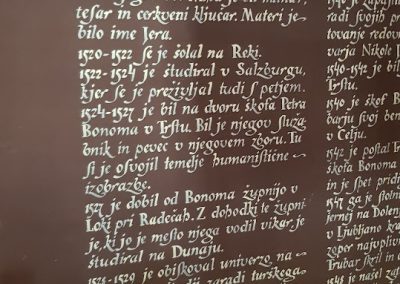 tesar in cerkveni ključar. Materi je
bilo ime Jera.
1520-1522 se je šolal na Reki.
1522-1524 je študiral v Salzburgu,
kjer se je preživljal tudi s petjem.
1524-1527 je bil na dvoru škofa Petra
Bonoma v Trstu. Bil je njegov služab-
nik in pevec v njegovem zboru. Tu
si je osvojil temelje humanistične
izobrazbe.
1527 je dobil od Bonoma župnijo v
Loki pri Radečah. Z dohodki te župni-
je, ki jo je mesto njega vodil vikar, je
študiral na Dunaju.
1528-1529 je obiskoval univerzo, na-
zaradi turškega
radi svojih pr
tovanje redov
varja Nikole
1540-1542 je bil
Trstu.
1540 je škof B
barju svoj ben
v Celju.
1542 je postal T
škofa Bonoma
in je spet pridi
1547 ga je stoln
jernej na Dolen
v Ljubljano kra
zoper najuplivn
Trubar skril in o
1548 je našel za